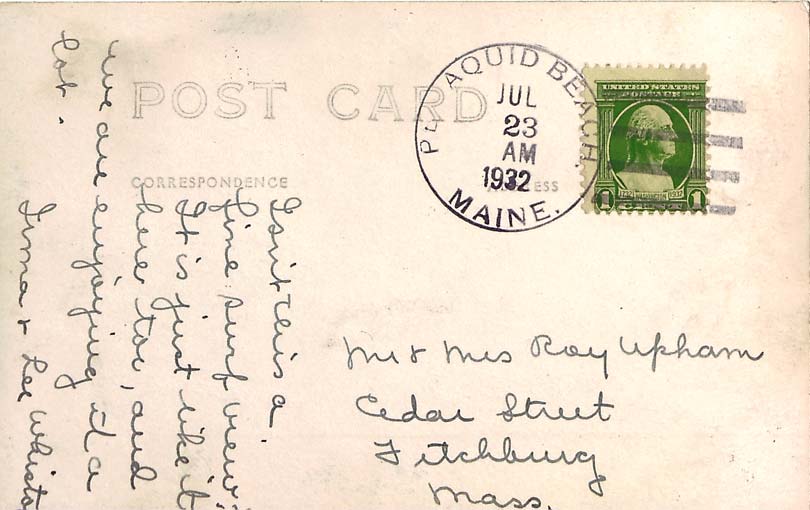 POST CARD
CORRESPONDENCE
AQUID BEACH.
JUL
23
AM
1932
MAINE.
UNITED STATES
POSTAGE
1732 WASHINGTON 1932
1 CENT 1
Isn't this a
fine surf view?
It is just like it
here too, and
we are enjoying it a
lot.
Irma & Lee
Mr & Mrs Roy Upham
Cedar Street
Fitchburg
Mass.